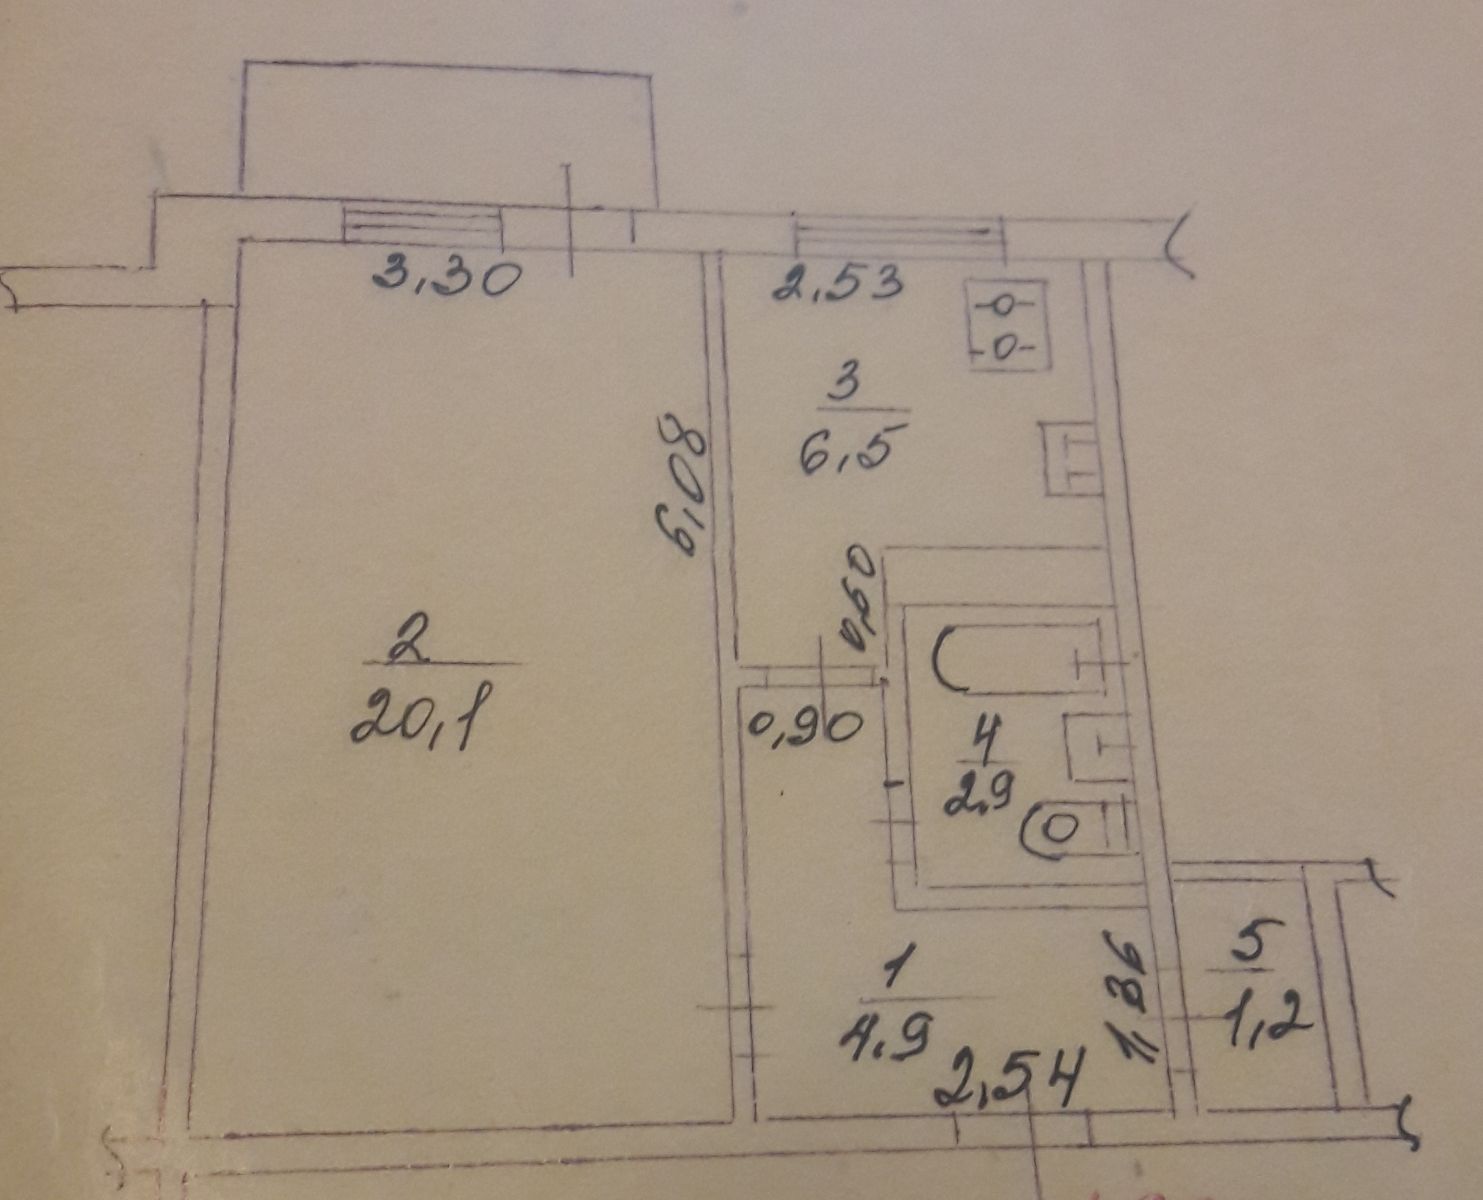 3,30
2,53
3
6,5
6,08
0,60
2
20,1
0,90
4
2.9
1
4.9
1,36
5
1,2
2,54